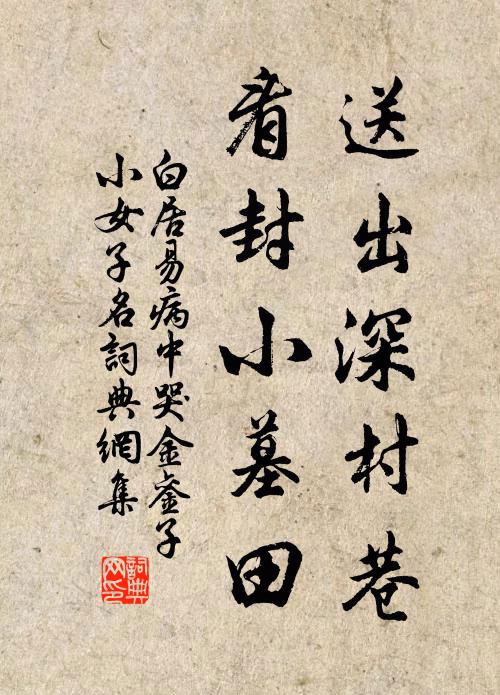 送出深村巷
看封小墓田
白居易病中哭金銮子
小女子名詞典網集
詞典网印